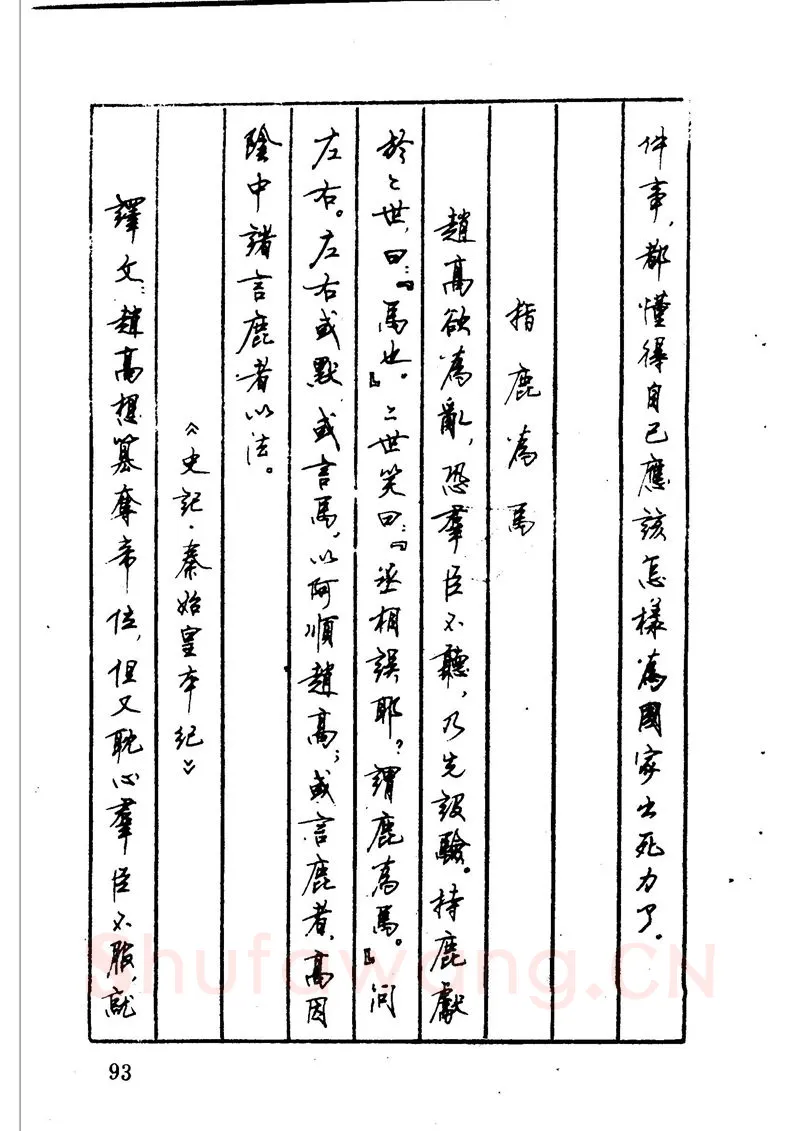 件事，都懂得自己應該怎樣為國家出死力了。
指鹿為馬
趙高欲為亂，恐羣臣不聽，乃先設驗。持鹿獻
於二世，曰：『馬也。』二世笑曰：『丞相誤耶？謂鹿為馬。』問
左右。左右或默，或言馬，以阿順趙高；或言鹿者，高因
陰中諸言鹿者以法。
《史記·秦始皇本紀》
譯文：趙高想篡奪帝位，但又耽心羣臣不服，就
93
Shufawang.CN